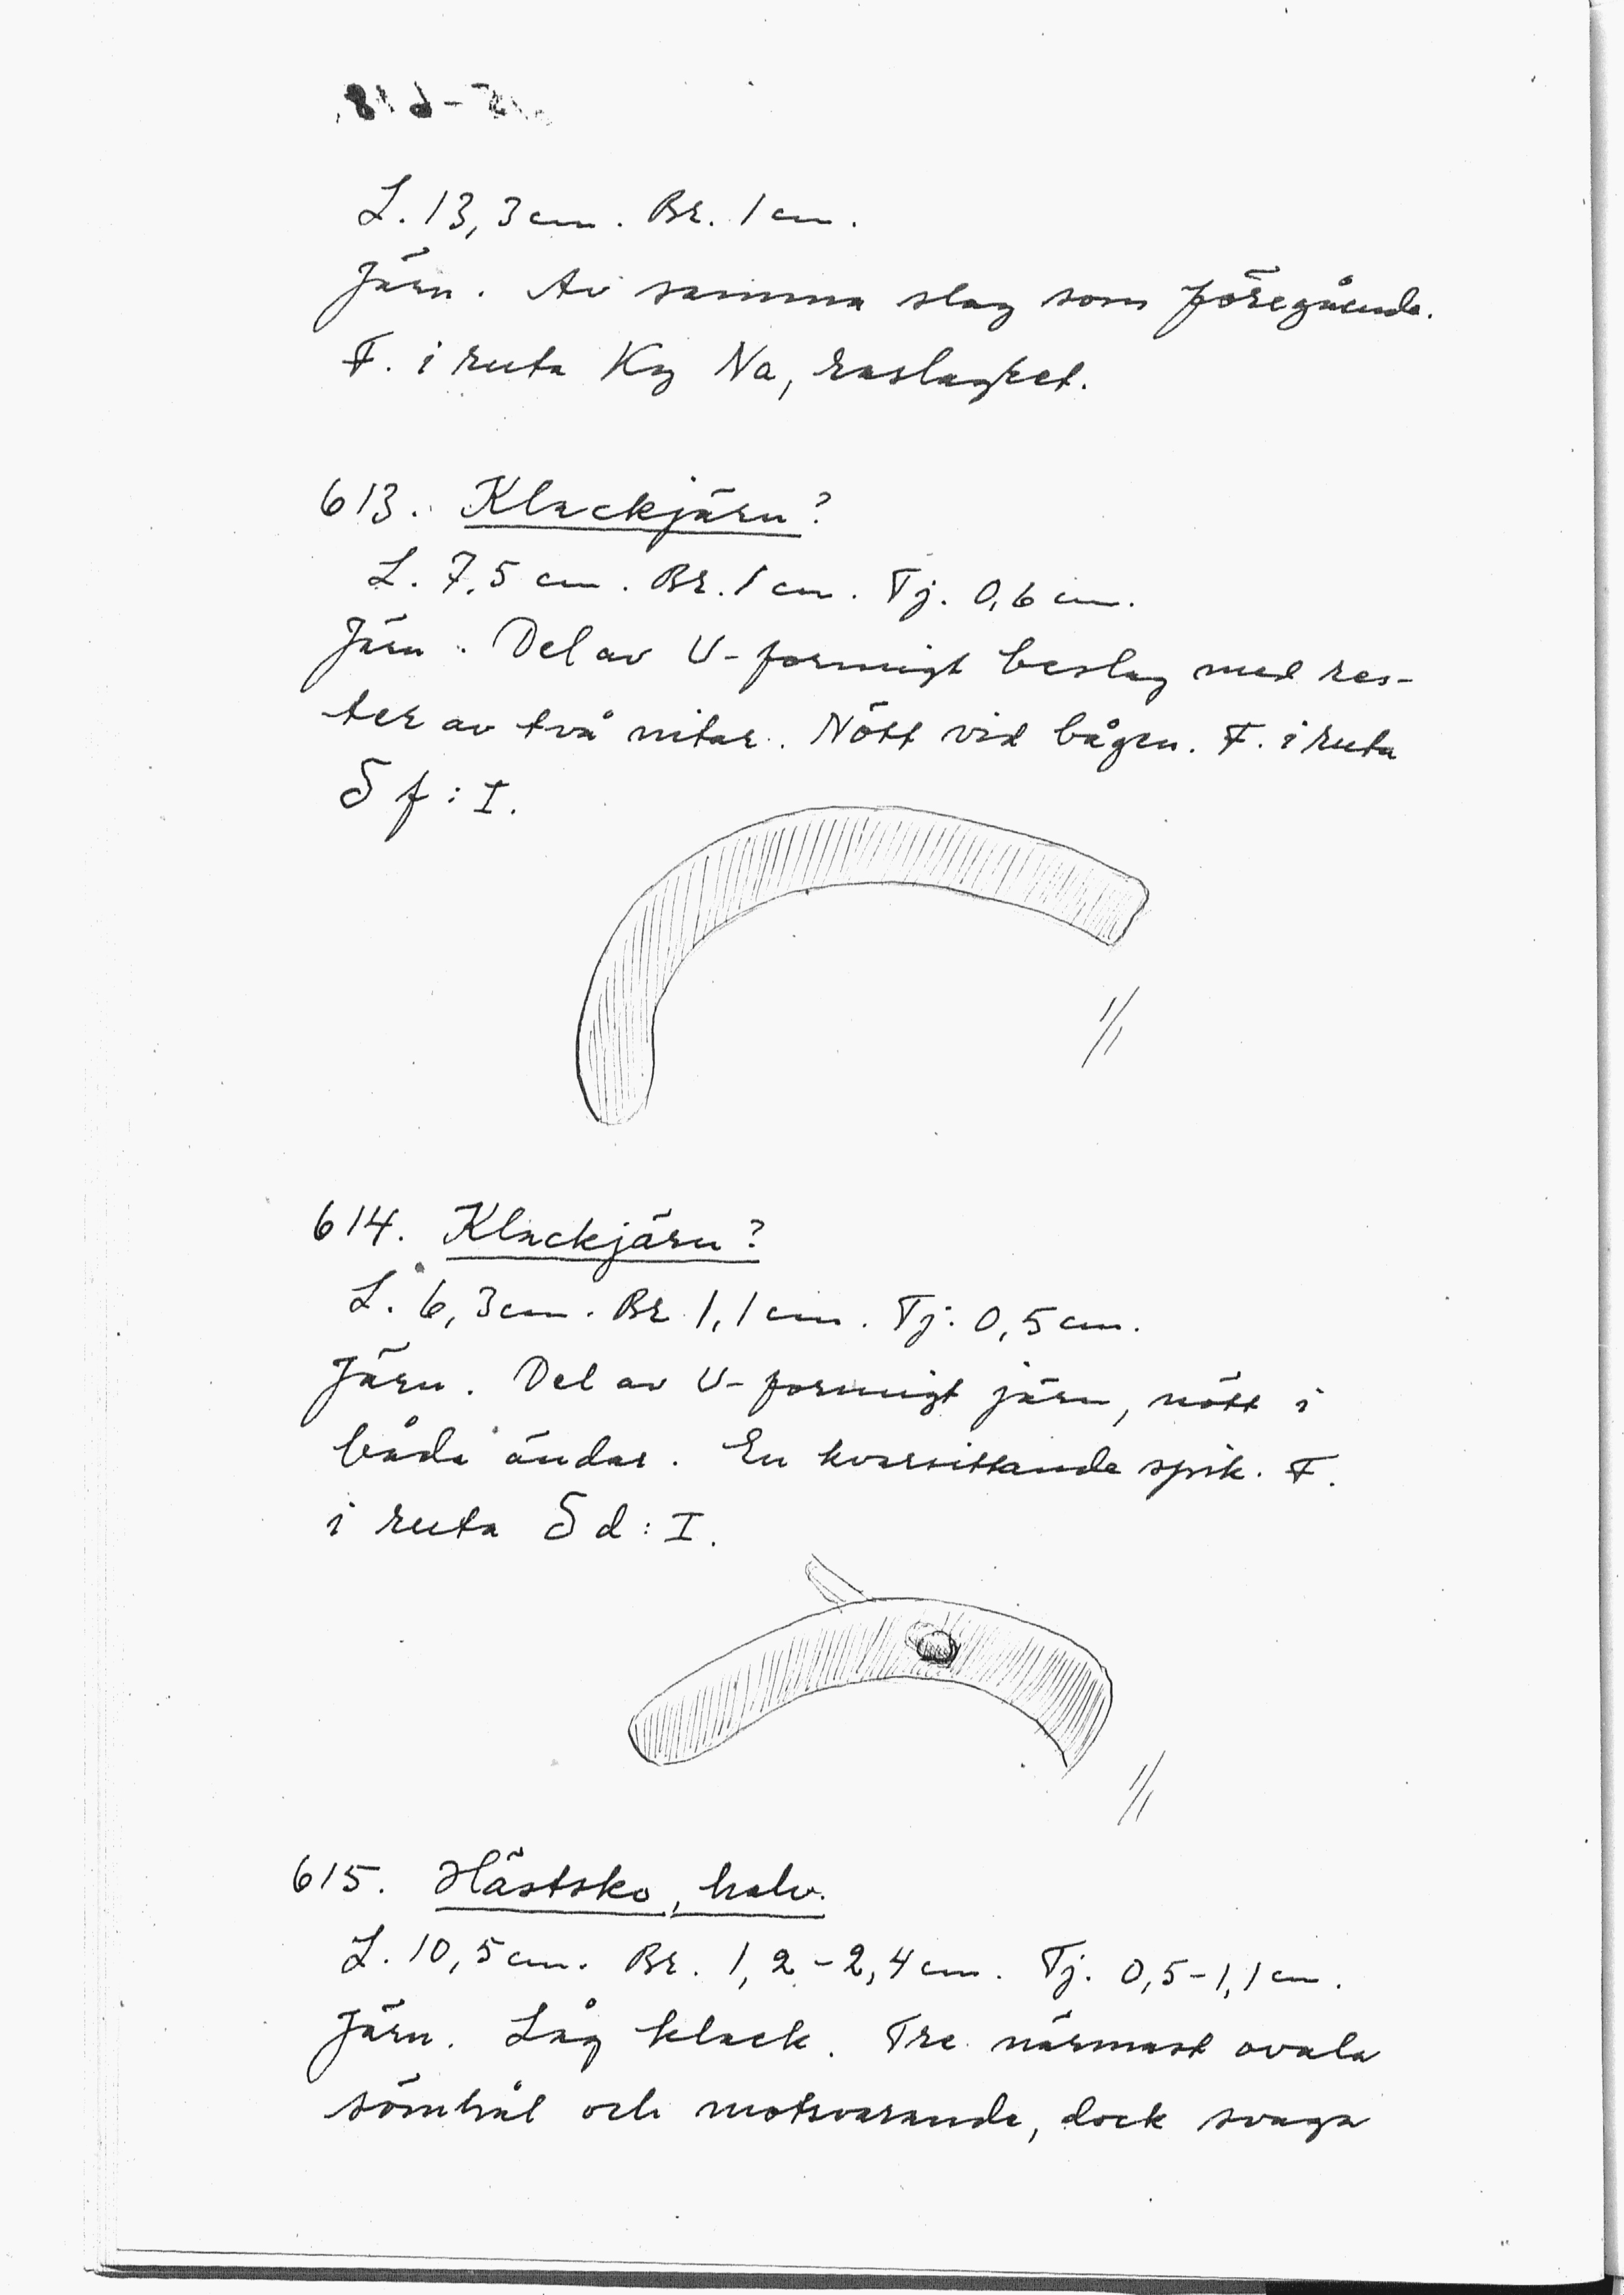 L. 13,3 cm. Br. 1 cm.
Järn. Av samma slag som föregående.
F. i ruta Kg Na, raslagret.
613. Klackjärn?
L. 7,5 cm. Br. 1 cm. Tj. 0,6 cm.
Järn. Del av U-formigt beslag med res-
ter av två nitar. Nött vid bågen. F. i ruta
S f: I.
1/1
614. Klackjärn?
L. 6,3 cm. Br. 1,1 cm. Tj: 0,5 cm.
Järn. Del av U-formigt järn, nött i
båda ändar. En kvarsittande spik. F.
i ruta S d: I.
1/1
615. Hästsko, halv.
L. 10,5 cm. Br. 1,2-2,4 cm. Tj. 0,5-1,1 cm.
Järn. Låg klack. Tre närmast ovala
sömhål och motsvarande, dock svaga